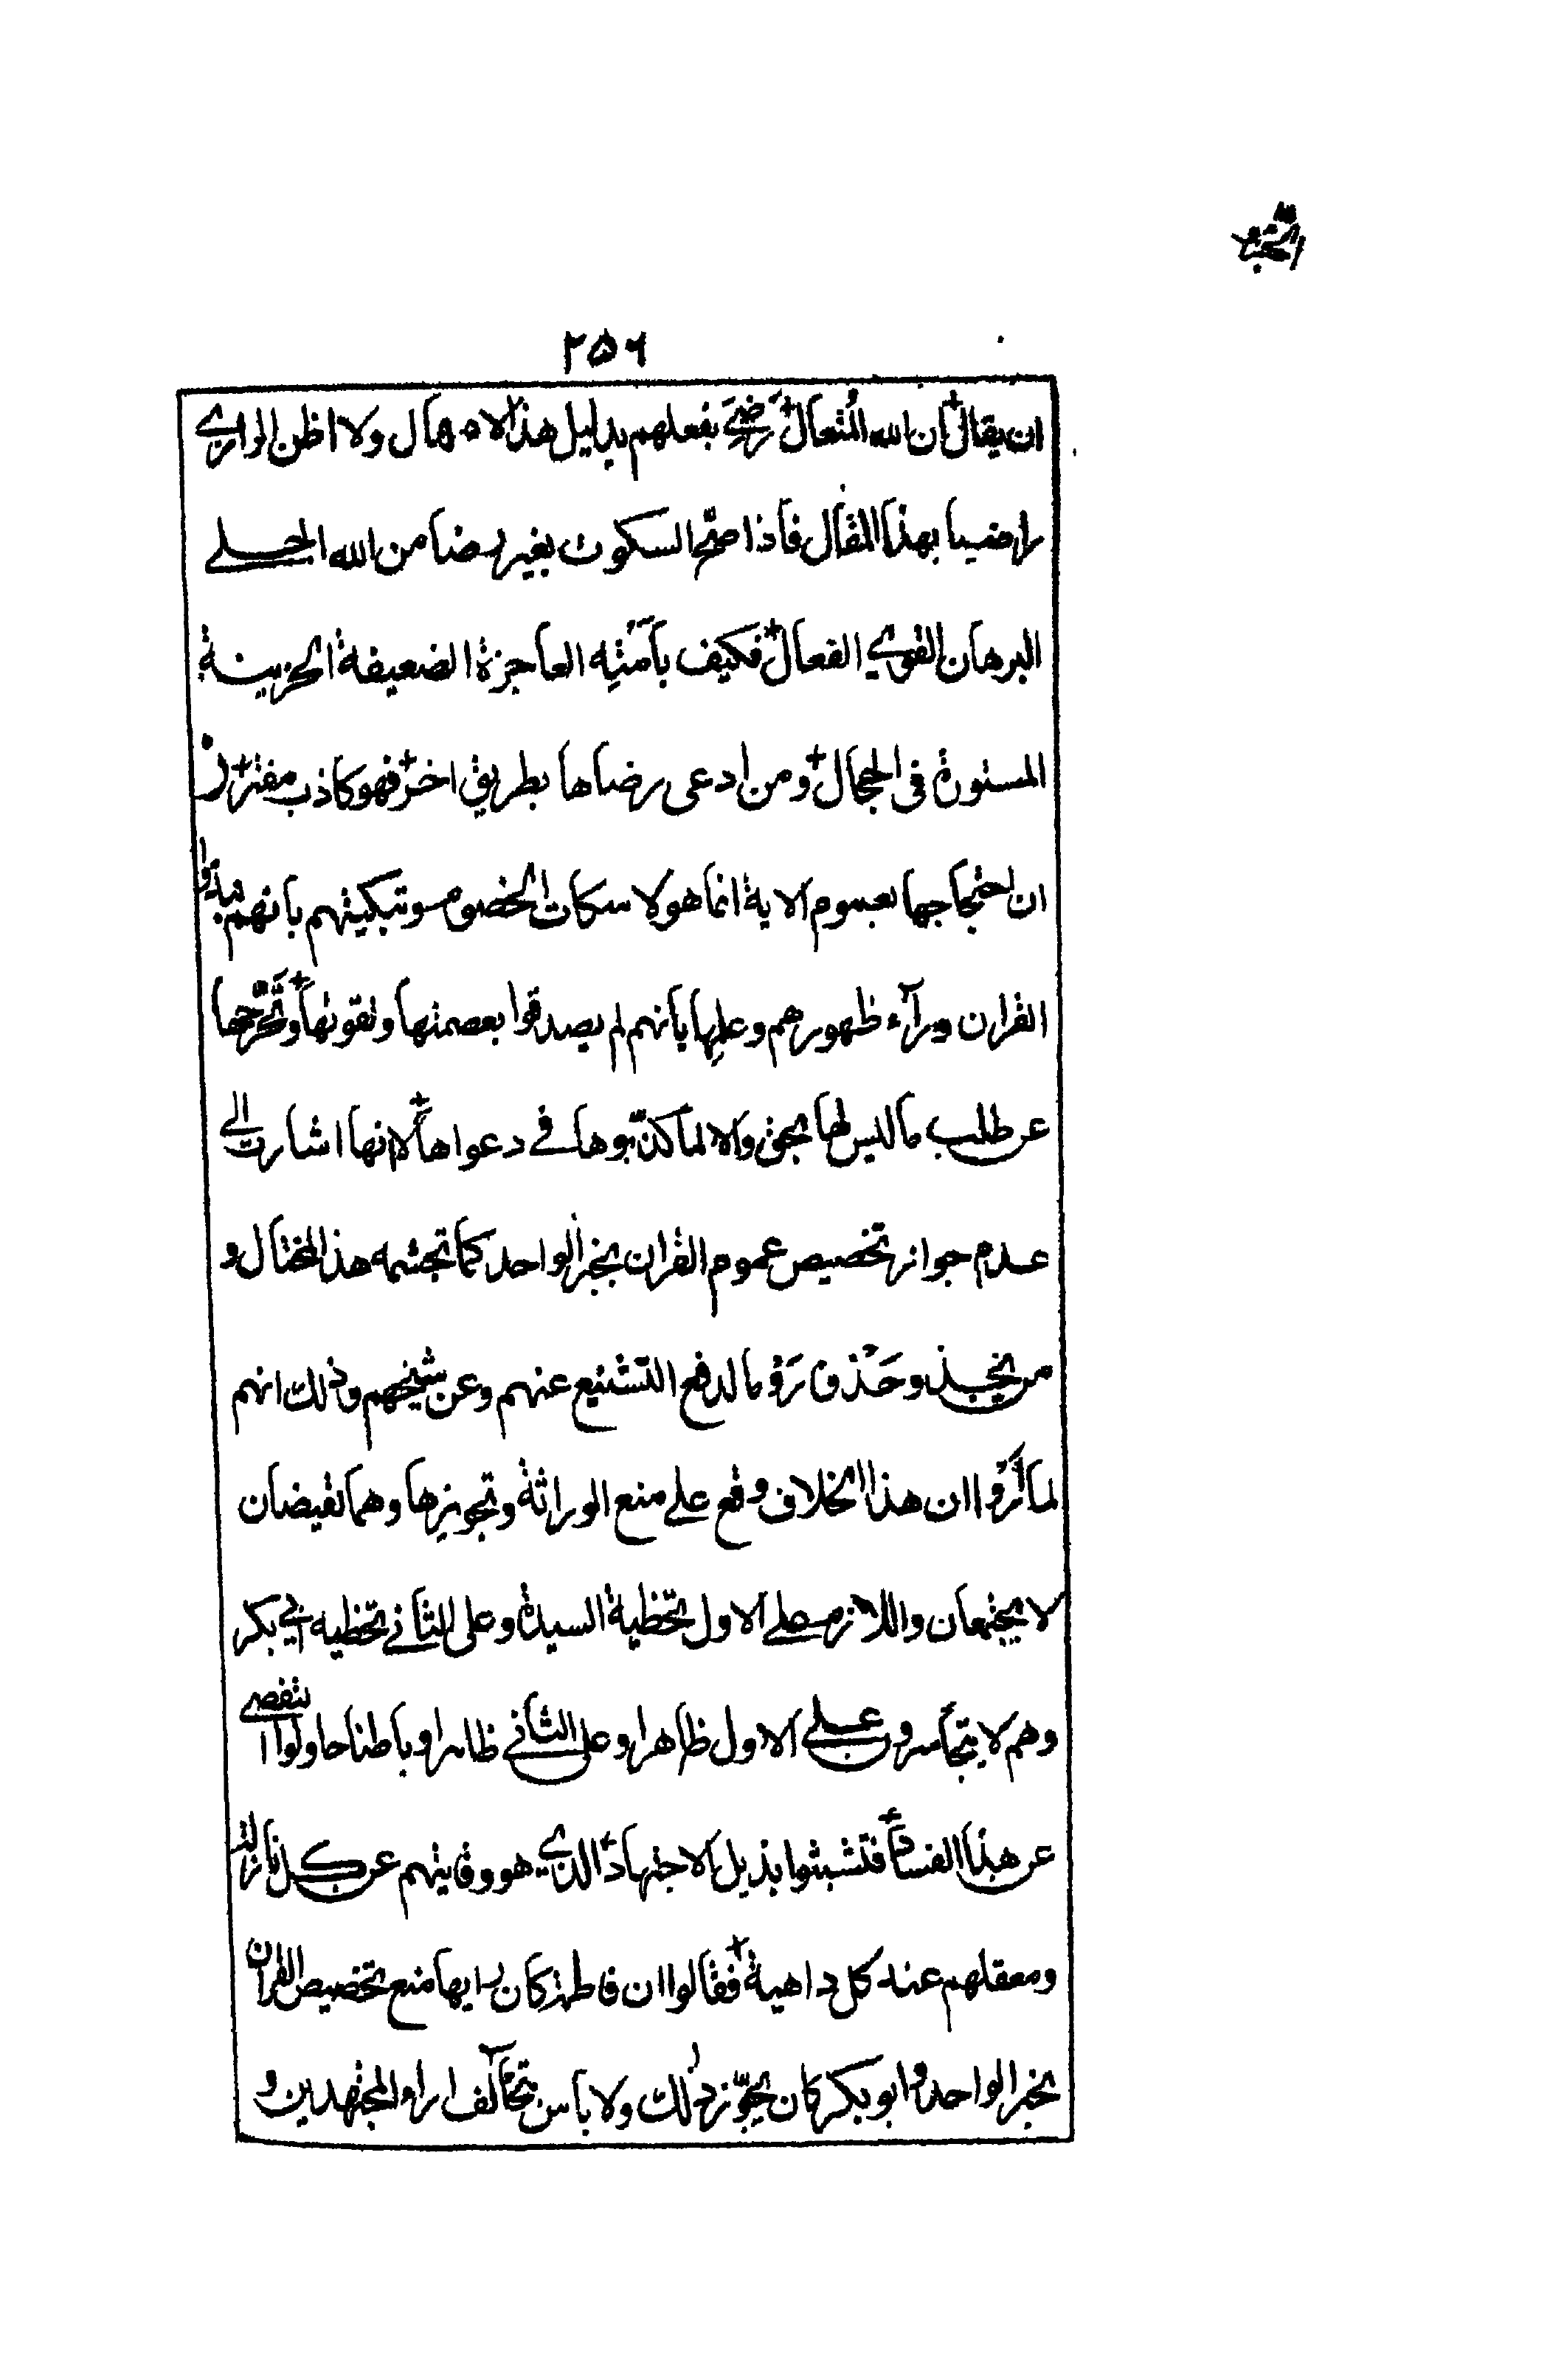 ٢٥٦
ان يقال ان الله المتعال رَضِيَ بفعلهم بدليل هذا الامهال ولا اظن الرازي
راضيا بهذا المقال فاذا صحّ السكوت بغير رضا من الله الجلي
البرهان القوي الفعال فكيف بأَمَتِه العاجزة الضعيفة الحزينة
المستورة في الحجال ومن ادعى رضاها بطريق اخر فهو كاذب مفتر
ان احتجاجها بعموم الاية انما هو لاسكات الخصوم وتبكيتهم بانهم نبذوا
القران وراء ظهورهم وعلمها بانهم لم يصدقوا بعصمتها وتقوٰها وتَحَرُّجها
عن طلب ما ليس لها بحق والا لما كذّبوها في دعواها لا انها اشارت الى
عدم جواز تخصيص عموم القران بخبر الواحد كما تجشمه هذا المختال و
من يحذو حَذْوَه رَوْما لدفع التشنيع عنهم وعن شيخهم وذلك انهم
لما رَأَوْا ان هذا الخلاف وقع على منع الوراثة وتجويزها وهما نقيضان
لا يجتمعان واللازم على الاول تخطية السيدة وعلى الثاني تخطيه ابي بكر
وهم لا يتجأسرون على الاول ظاهرا وعلى الثاني ظاهرا وباطنا حاولوا التفصي
عن هذا الفساد فتشبثوا بذيل الاجتهاد الذي هو وقايتهم عن كل نازلة
ومعقلهم عند كل داهية فقالوا ان فاطمة كان رايها منع تخصيص القران
بخبر الواحد وابو بكر كان يجوّز ذلك ولا باس بتخالف اراء المجتهدين و